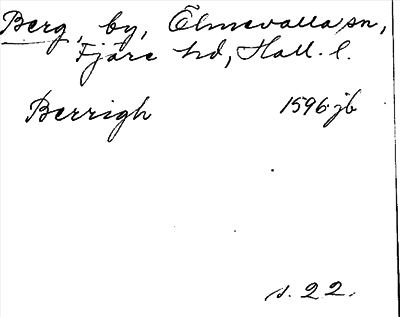 Berg, by, Ölmevalla sn,
Fjäre hd, Hall. l.
Berrigh 1596 jb
s. 22.